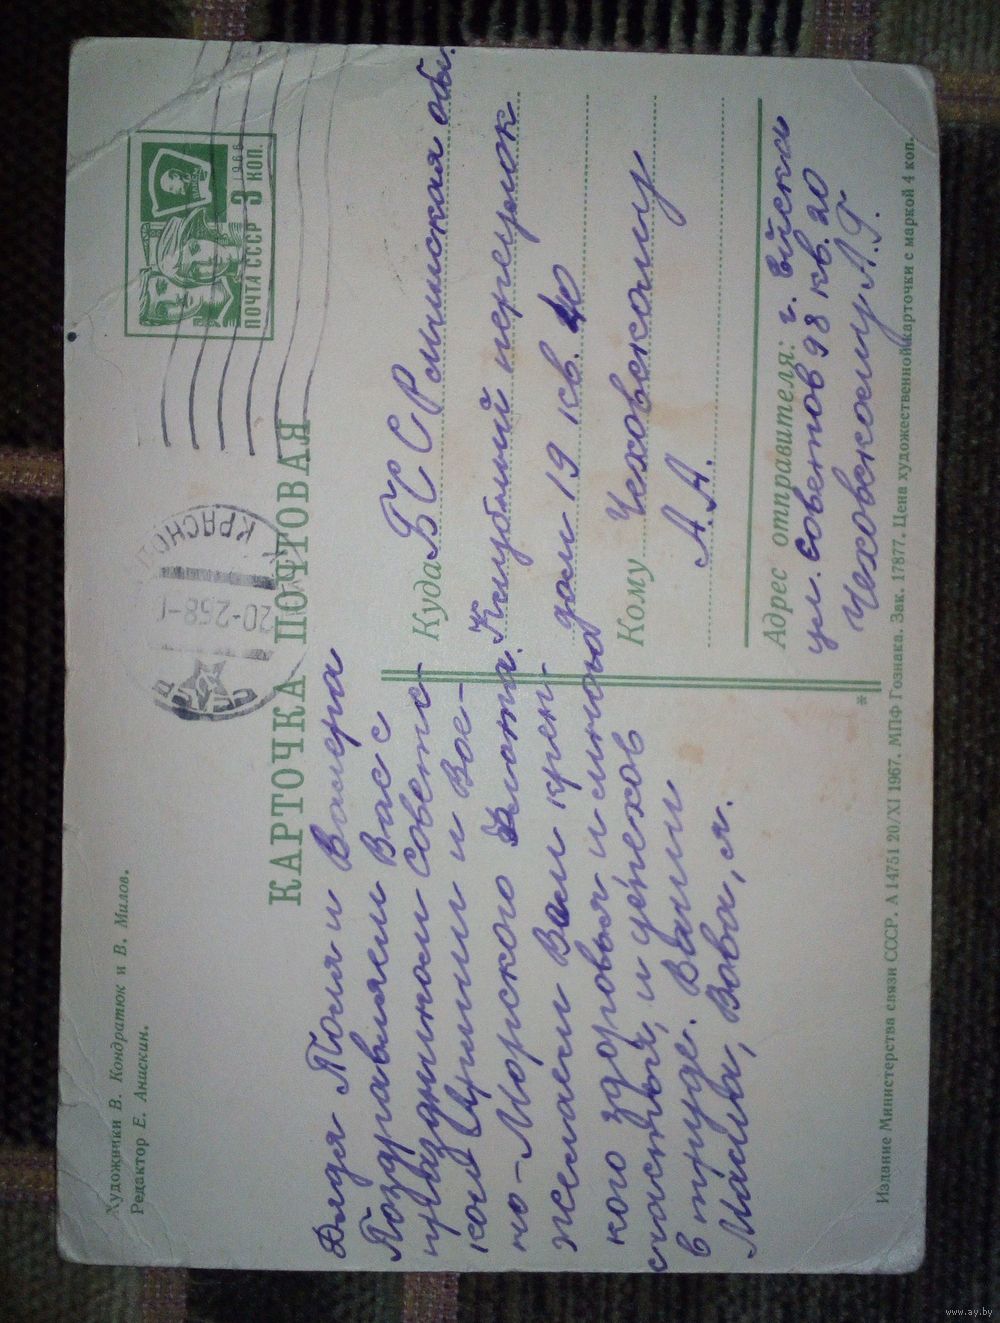 Художники В. Кондратюк и В. Милов.
Редактор Е. Анискин.
КАРТОЧКА ПОЧТОВАЯ
ПОЧТА СССР 3 КОП.
1966
КРАСНОД
Дядя Толя и Валера
Поздравляем Вас с
праздником Советс-
кой Армии и Вое-
но-Морского Флота.
Желаем Вам креп-
кого здоровья и много
счастья, и успехов
в труде. Ваши
Маша, Вова, я.
Куда БССР минская обл.
Клубный переулок
дом 19 кв. 40
Кому Чеховскому
А.А.
Адрес отправителя: г.
ул. Советов 98 кв. 20
Чеховскому Л.Г.
*
Издание Министерства связи СССР. А 14751 20/XI 1967. МПФ Гознака. Зак. 17877. Цена художественной карточки с маркой 4 коп.
www.ay.by